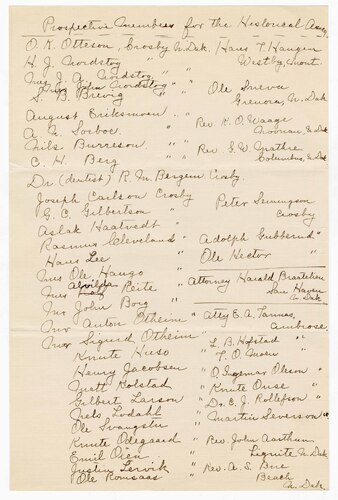 Prospective members for the Historical Assn
O. K. Otteson, Crosby N. Dak.
Hans T. Haugen
Westby, Mont.
H. J. Nordstog " "
Mrs J. A. Nordstog "
Miss Nordstog "
S. B. Brevig " "
Ole
Grenora, N. Dak
August Eriksmoen " "
A. N. Sorboe " "
Rev. K. O. Waage
Noonan, N. Dak
Nils Burreson " "
Rev. G. W. Mathre
Columbus, N. Dak
C. H. Berg "
Dr. (dentist) R. M. Bergem Crosby
Joseph Carlson Crosby
G. C. Gilbertson "
Peter Semingson
Crosby
Aslak Haatvedt "
Rasmus Cleveland "
Adolph Gubberud "
Hans Lee "
Ole Hector "
Mrs Ole Haugo "
Attorney Harald
N. Dak.
Mrs "
Mrs John Borg "
Mrs Anton Ottheim "
Atty E. A. Tannas,
Ambrose
Mrs Sigurd Ottheim "
L. B. Hofstad "
Knute Huso "
T. O. Moen "
Henry Jacobsen "
O. Ingemar Oleson "
Matt Rolstad "
Knute "
Gilbert Larson "
Dr. C. J. Rollefson "
Nels Lodahl "
Martin Severson "
Ole Svangstu "
Knute Odegaard "
Rev. John Aasthun
Lignite N. Dak
Emil Oien "
Justin Lervik "
Rev. A. S.
Beach
N. Dak
Ole Ronsaas "